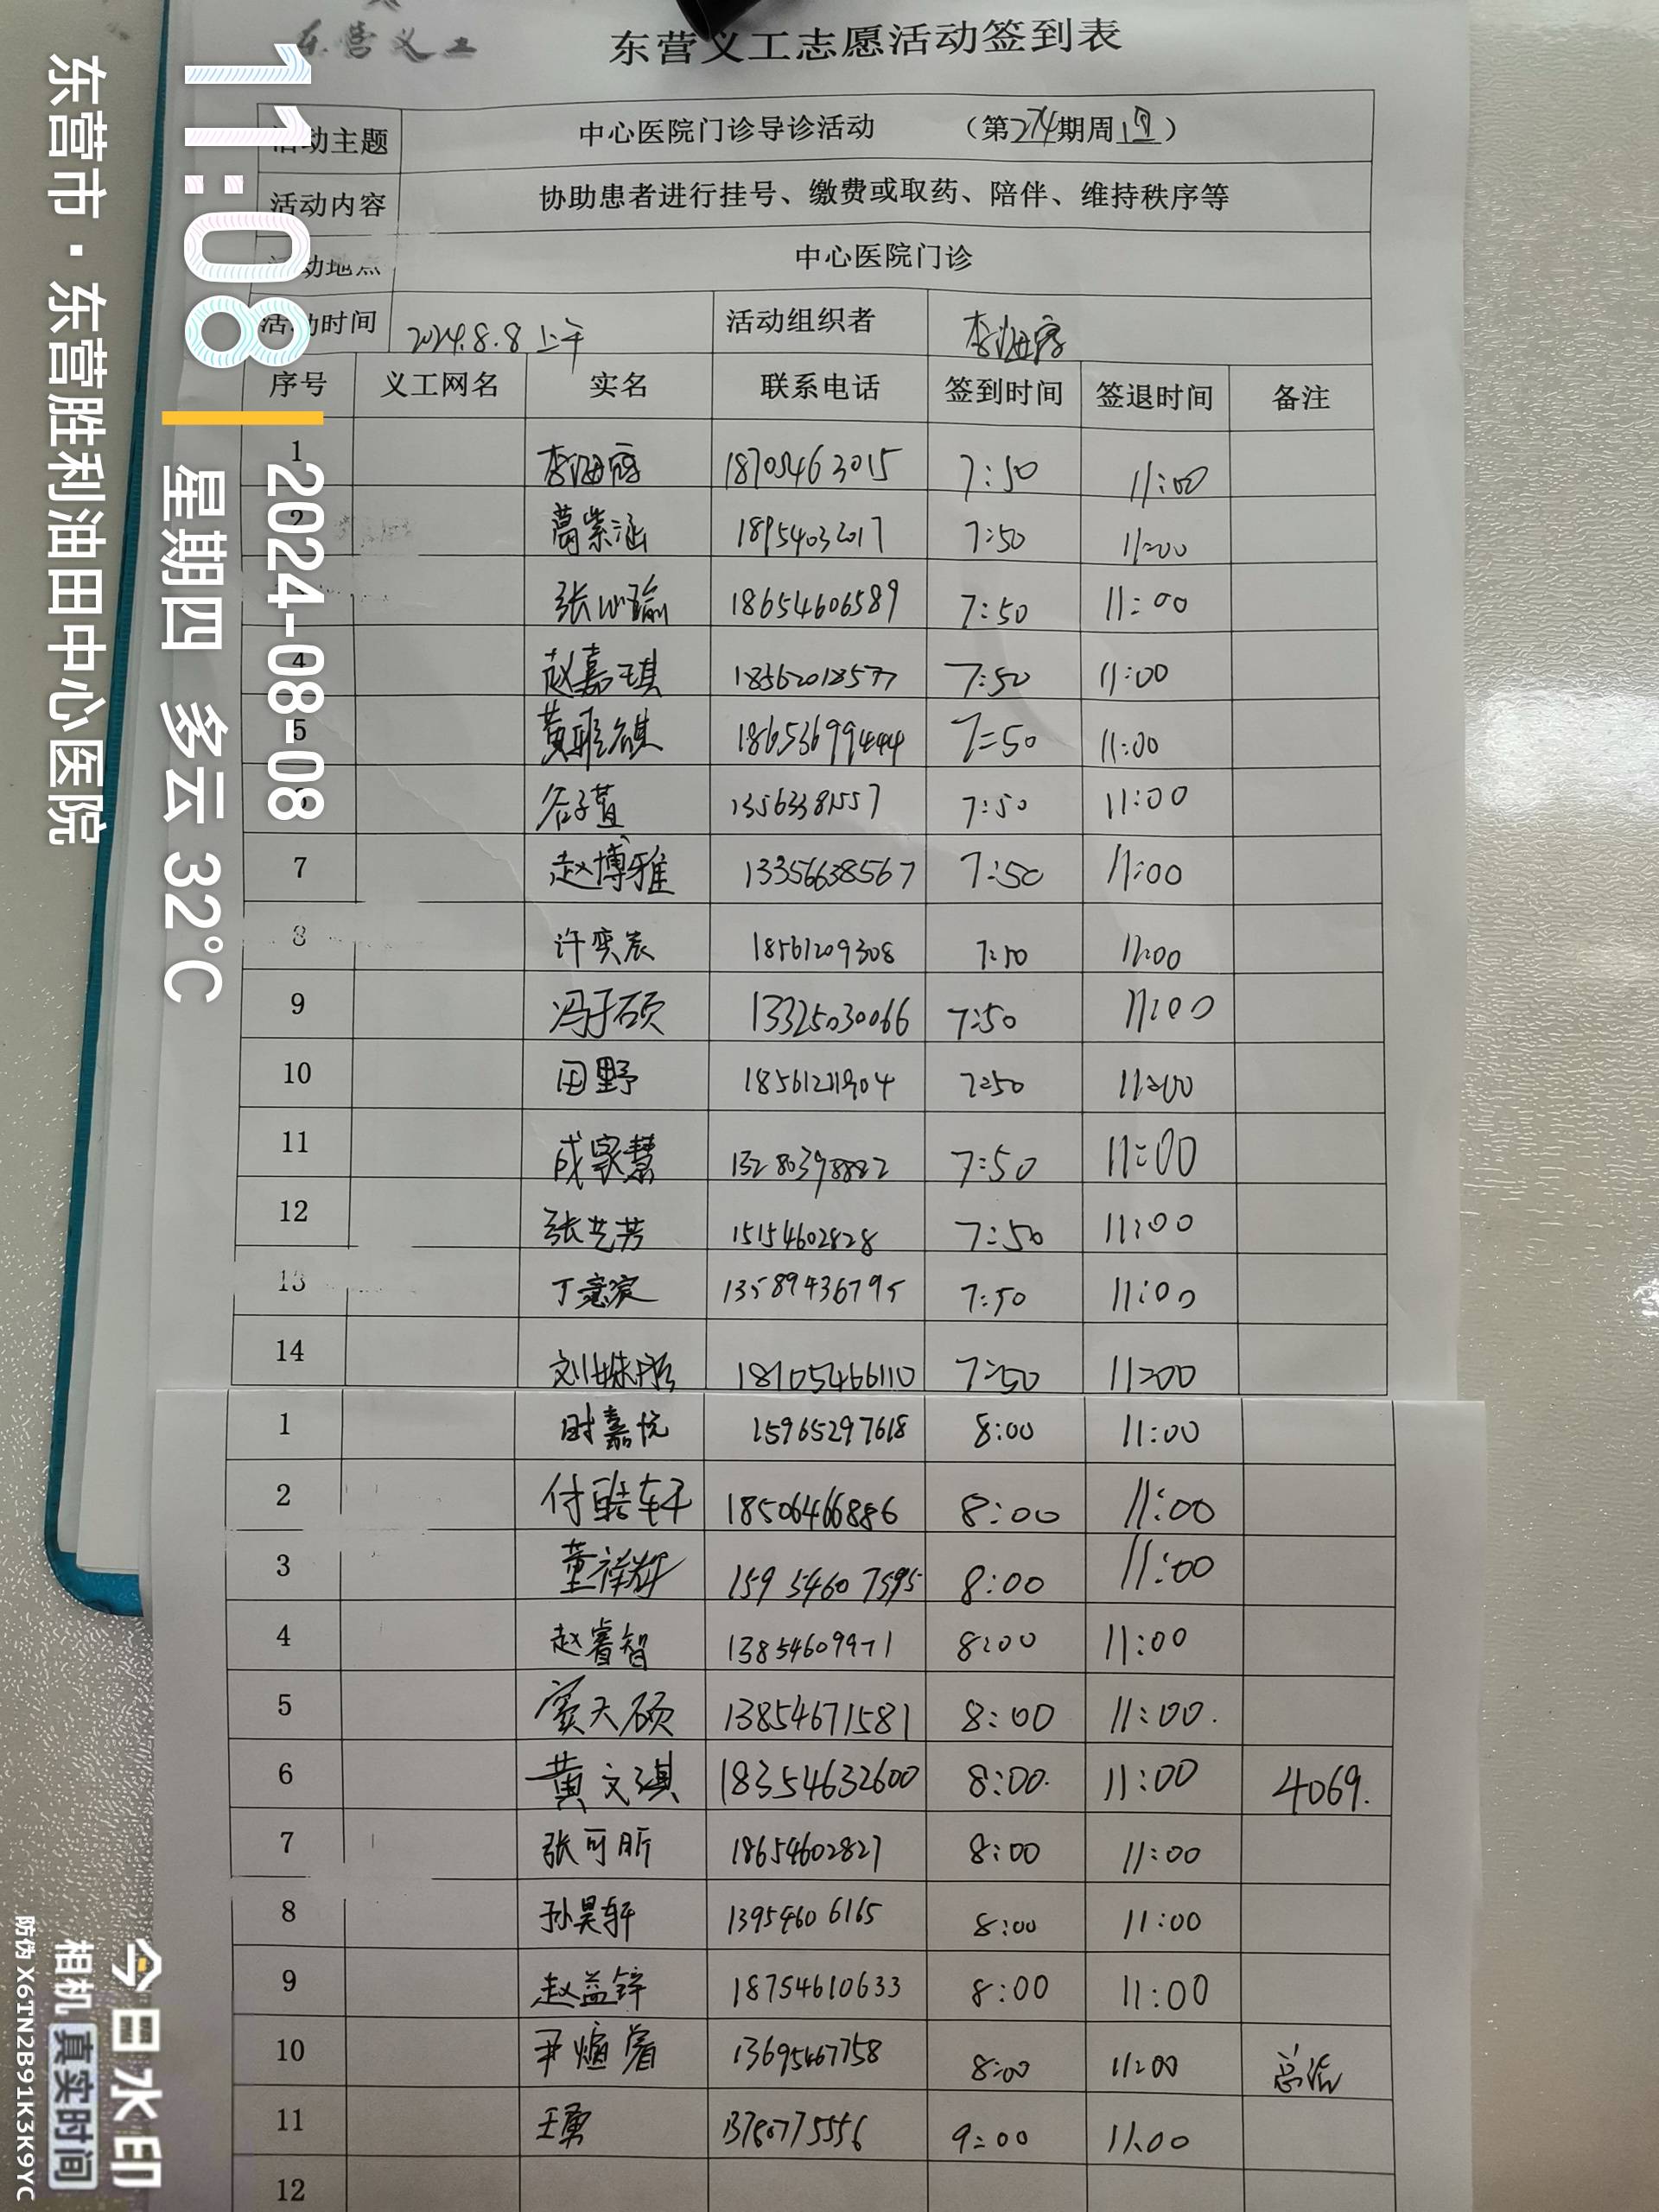 东营义工
东营义工志愿活动签到表
活动主题 中心医院门诊导诊活动 （第274期周四）
活动内容 协助患者进行挂号、缴费或取药、陪伴、维持秩序等
活动地点 中心医院门诊
活动时间 2024.8.8 上午 活动组织者
序号 义工网名 实名 联系电话 签到时间 签退时间 备注
1 18705463015 7:50 11:00
2 葛紫涵 18954032017 7:50 11:00
张心瑜 18654606589 7:50 11:00
4 赵嘉琪 18562012577 7:50 11:00
5 黄雅祺 18653699444 7:50 11:00
6 谷子萱 13563381557 7:50 11:00
7 赵博雅 13356638567 7:50 11:00
8 许奕辰 18561209308 7:50 11:00
9 冯子硕 13325030066 7:50 11:00
10 田野 18561211904 7:50 11:00
11 成家慧 13280398882 7:50 11:00
12 张艺芳 15154602828 7:50 11:00
13 13589436795 7:50 11:00
14 刘姝彤 18105466110 7:50 11:00
1 时嘉悦 15965297618 8:00 11:00
2 付皓轩 18506466886 8:00 11:00
3 董祥 159 5460 7595 8:00 11:00
4 赵睿智 13854609971 8:00 11:00
5 窦天硕 13854671581 8:00 11:00.
6 黄文琪 18354632600 8:00. 11:00 4069.
7 张可昕 18654602827 8:00 11:00
8 孙昊轩 1395460 6165 8:00 11:00
9 赵益锌 18754610633 8:00 11:00
10 尹煊 13695467758 8:00 11:00
11 王勇 13780775556 9:00 11:00
12
11:08
2024-08-08
星期四 多云 32°C
东营市·东营胜利油田中心医院
今日水印
相机 真实时间
防伪 X6TN2B91K3K9YC